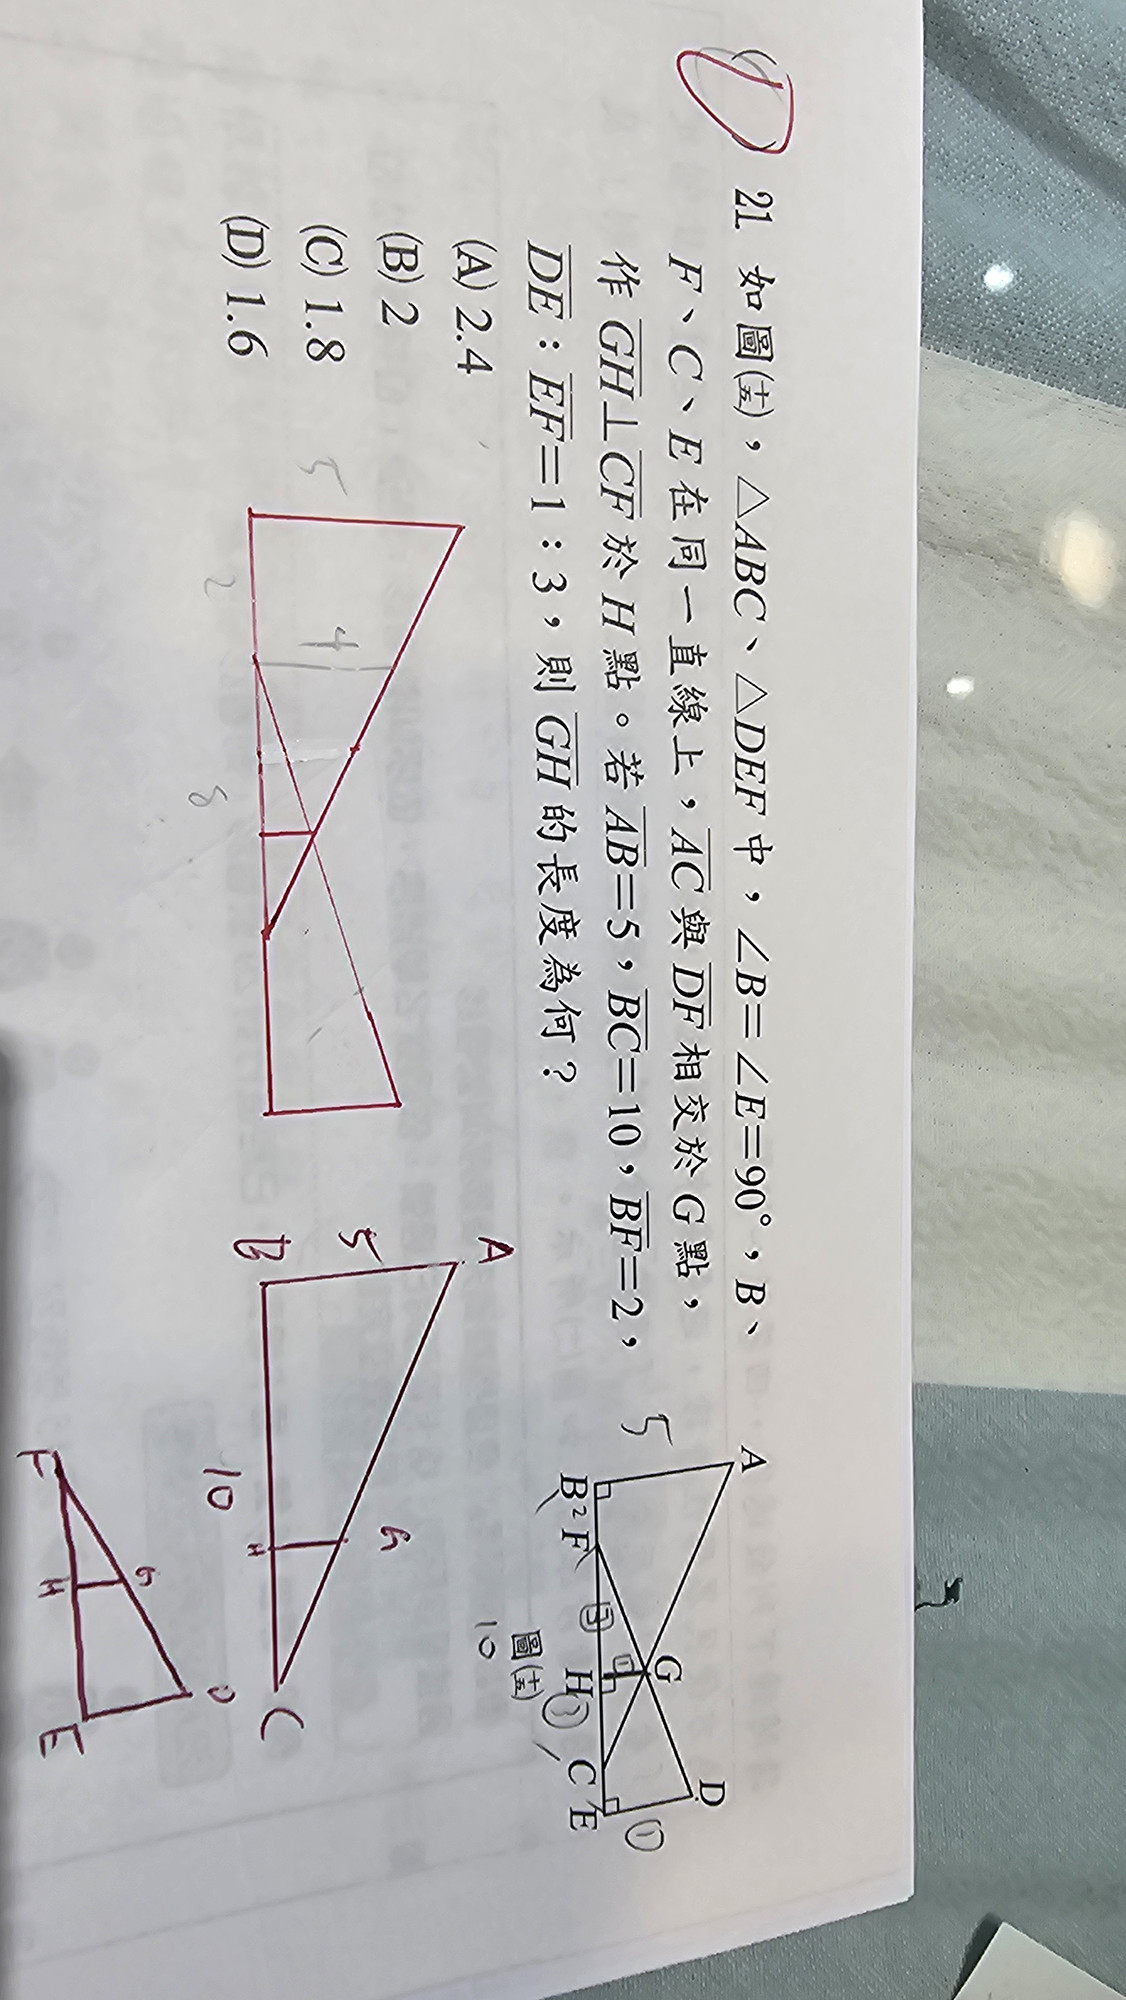 21. 如圖(十五)，△ABC、△DEF中，∠B=∠E=90°，B、
F、C、E在同一直線上，AC與DF相交於G點，
作GH⊥CF於H點。若AB=5，BC=10，BF=2，
DE：EF=1：3，則GH的長度為何？
(A) 2.4
(B) 2
(C) 1.8
(D) 1.6
A
5
G
D
B 2 F 3 H 3 C E
1
1
圖(十五)
10
5
4
2
8
A
5
G
B
H
C
10
D
G
F
H
E